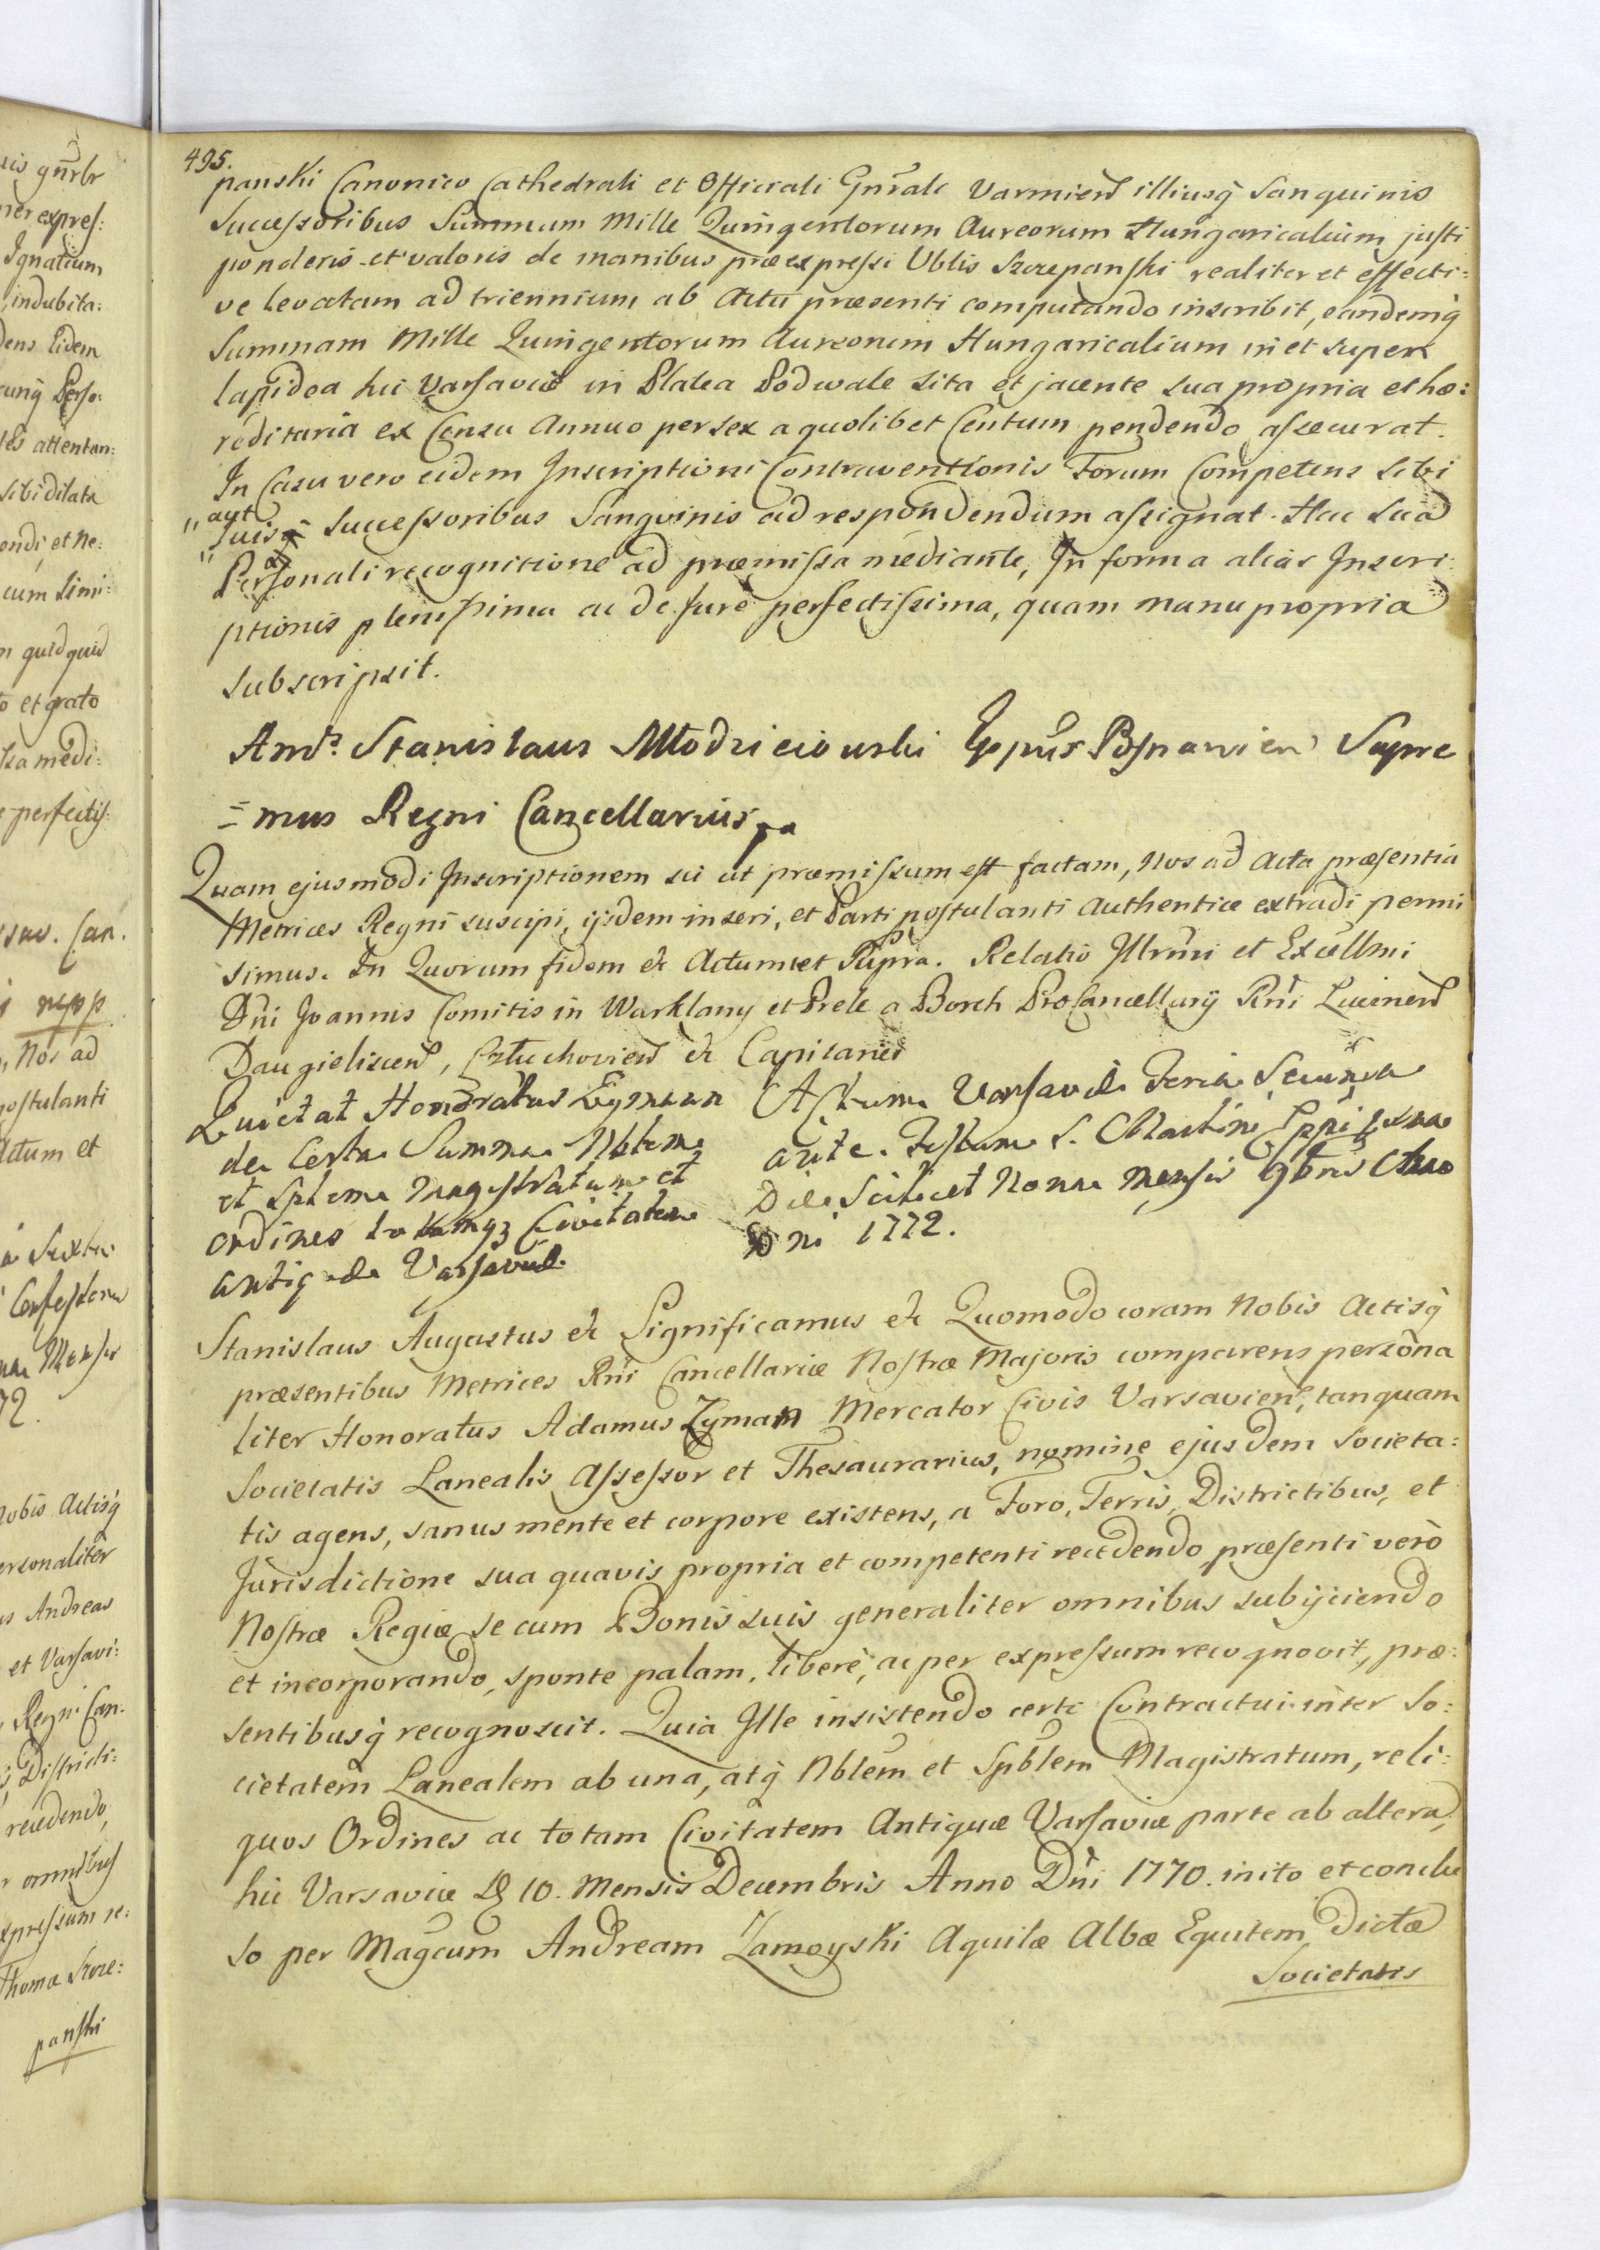 495.
panski Canonico Cathedrali et Officiali Gnrale Varmien illiusq Sanguinis
Successoribus Summam Mille Quingentorum Aureorum Hungaricalium justi
ponderis et valoris de manibus præexpressi Vblis Szczepanski realiter et effecti:
ve levatam ad triennium ab Actu præsenti computando inscribit, eandemq
Summam Mille Quingentorum Aureorum Hungaricalium in et super
lapidea hic Varsaviæ in Platea Podwale sita et jacente sua propria et hæ:
reditaria ex Censu Annuo per sex a quolibet Centum pendendo assecurat.
In Casu vero eidem Inscriptioni Contraventionis Forum Competens sibi
aut
suisq Successoribus Sanguinis ad respondendum assignat. Hac Sua
Personali recognitione ad præmissa mediante, In forma alias Inscri:
ptionis plenissima ac de Jure perfectissima, quam manu propria
subscripsit.
And: Stanislaus Młodzieiowski Eppus Posnanien Supre
=mus Regni Cancellarius
Quam ejusmodi Inscriptionem sic ut præmissum est factam, Nos ad Acta præsentia
Metrices Regni suscipi, ijsdem inseri, et Parti postulanti Authentice extradi permi
simus. In Quorum fidem et Actum ut Supra. Relatio Illrmi et Excellmi
Dni Joannis Comitis in Warklany et Prele a Borch ProCancellarij Rni Lucinen
Daugieliscen, Człuchovien et Capitanei
Quietat Honoratus Zyman
de Certa Summa Nblem
et Spblem Magistratum et
ordines totamq Civitatem
antiquæ Varsaviæ
Actum Varsaviæ Feria Secunda
ante Festum S. Martini Eppi
Die Scilicet Nona Mensis 9bris Anno
Dni 1772.
Stanislaus Augustus et Significamus et Quomodo coram Nobis Actisq
præsentibus Metrices Rni Cancellariæ Nostræ Majoris comparens persona
liter Honoratus Adamus Zyman Mercator Civis Varsavien, tanquam
Societatis Lanealis Assessor et Thesaurarius, nomine ejusdem Societa:
tis agens, sanus mente et corpore existens, a Foro, Terris, Districtibus, et
Jurisdictione sua quavis propria et competenti recedendo præsenti verò
Nostræ Regiæ se cum Bonis suis generaliter omnibus subijciendo
et incorporando, sponte palam, liberè, ac per expressum recognovit, præ:
sentibusq recognoscit. Quia Ille insistendo certi Contractui inter So:
cietatem Lanealem ab una, atq Nblem et Spblem Magistratum, reli:
quos Ordines ac totam Civitatem Antiquæ Varsaviæ parte ab altera,
hic Varsaviæ D 10. Mensis Decembris Anno Dni 1770. inito et conclu
so per Magcum Andream Zamoyski Aquilæ Albæ Equitem, dictæ
Societatis